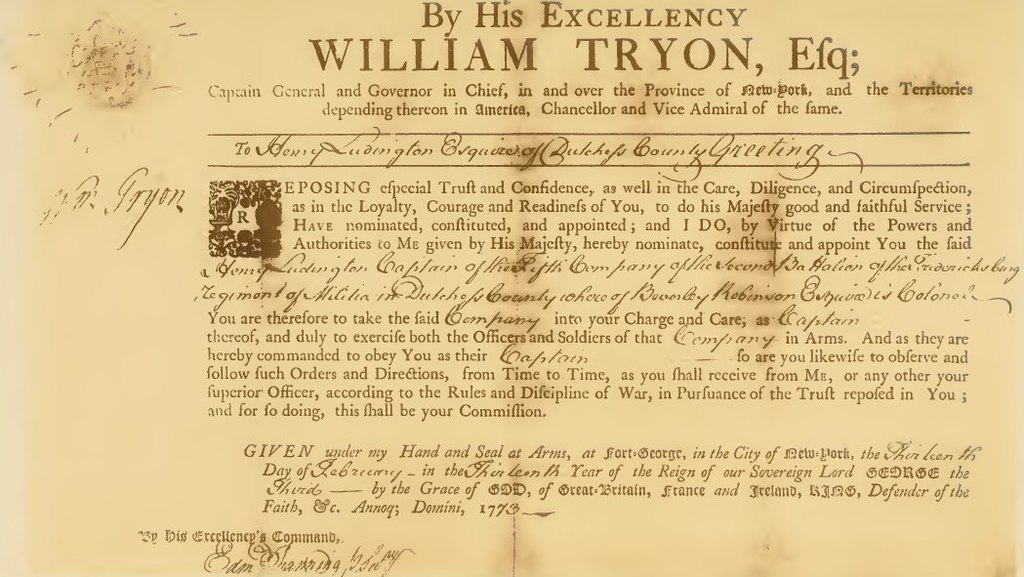 By His EXCELLENCY
WILLIAM TRYON, Eſq;
Captain General and Governor in Chief, in and over the Province of New-York, and the Territories
depending thereon in America, Chancellor and Vice Admiral of the ſame.
To Henry Ludington Esquire of Dutchess County Greeting
Wm. Tryon
REPOSING eſpecial Truſt and Confidence, as well in the Care, Diligence, and Circumſpection,
as in the Loyalty, Courage and Readineſs of You, to do his Majeſty good and faithful Service;
HAVE nominated, conſtituted, and appointed; and I DO, by Virtue of the Powers and
Authorities to ME given by His Majeſty, hereby nominate, conſtitute and appoint You the ſaid
Henry Ludington Captain of the Fifth Company of the Second Battalion of the Fredericksburg
Regiment of Militia in Dutchess County whereof Beverley Robinson Esquire is Colonel
You are therefore to take the ſaid Company into your Charge and Care, as Captain
thereof, and duly to exerciſe both the Officers and Soldiers of that Company in Arms. And as they are
hereby commanded to obey You as their Captain — ſo are you likewiſe to obſerve and
follow ſuch Orders and Directions, from Time to Time, as you ſhall receive from ME, or any other your
ſuperior Officer, according to the Rules and Diſcipline of War, in Purſuance of the Truſt repoſed in You;
and for ſo doing, this ſhall be your Commiſſion.
GIVEN under my Hand and Seal at Arms, at Fort-George, in the City of New-York, the Thirteenth
Day of February – in the Thirteenth Year of the Reign of our Sovereign Lord GEORGE the
Third — by the Grace of GOD, of Great-Britain, France and Ireland, KING, Defender of the
Faith, &c. Annoq; Domini, 1773 —
By His Excellency's Command,
Edm Fanning